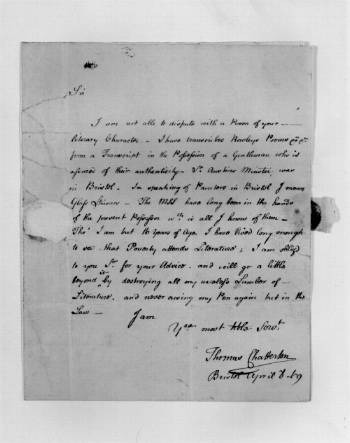 Sir
I am not able to dispute with a Person of your
literary Character. I have transcribed Rowley's Poems &c &c
from a Transcript in the Possession of a Gentleman who is
assured of their authenticity. St. Austins Minster, was
in Bristol. In speaking of Painters in Bristol I mean
Glass Stainers. The MSS have long been in the hands
of the present Possessor wch is all I know of them
Tho' I am but 16 Years of Age I have lived long enough
to see that Poverty attends Literature; I am obliged
to you Sr. for your Advice and will go a little
beyond it by destroying all my useless Lumber of
Literature, and never using my Pen again but in the
Law
I am
Your most hble Servt.
Thomas Chatterton
Bristol April 8 69